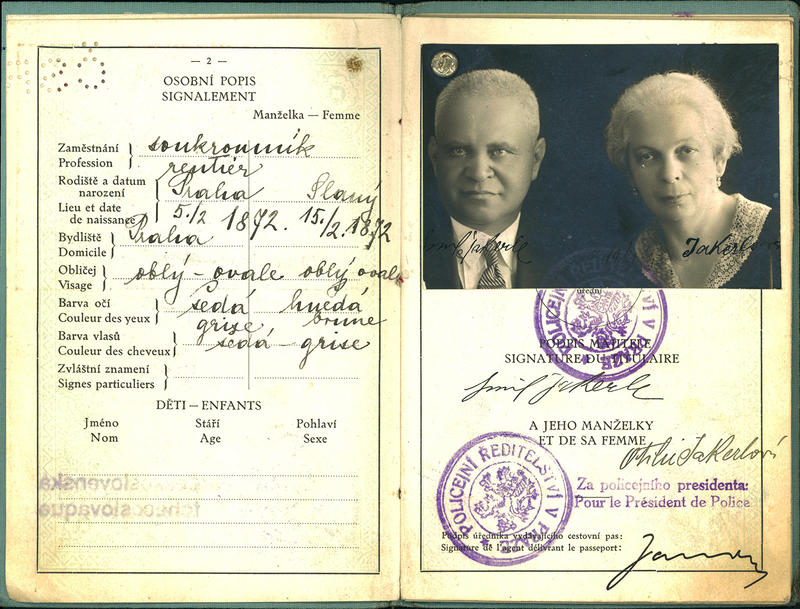 — 2 —
OSOBNÍ POPIS
SIGNALEMENT
Manželka — Femme
Zaměstnání
Profession
soukromník
rentiér
Rodiště a datum
narození
Lieu et date
de naissance
Praha Slaný
5./2 1872. 15./2. 1872
Bydliště
Domicile
Praha
Obličej
Visage
oblý - ovale oblý ovale
Barva očí
Couleur des yeux
šedá hnědá
grise brune
Barva vlasů
Couleur des cheveux
šedá - grise
Zvláštní znamení
Signes particuliers
DĚTI — ENFANTS
Jméno Stáří Pohlaví
Nom Age Sexe
Jakerle
Jakerlová
POLICEJNÍ ŘEDITELSTVÍ V PRAZE
PODPIS MAJITELE
SIGNATURE DU TITULAIRE
Emil Jakerle
A JEHO MANŽELKY
ET DE SA FEMME
Otilie Jakerlová
POLICEJNÍ ŘEDITELSTVÍ V PRAZE
Za policejního presidenta:
Pour le Président de Police
Podpis úředníka vydávajícího cestovní pas:
Signature de l'agent délivrant le passeport: